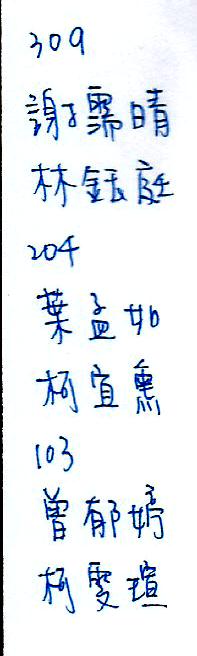 309
謝霈晴
林鈺庭
204
葉孟如
柯宜熏
103
曾郁婷
柯雯瑄